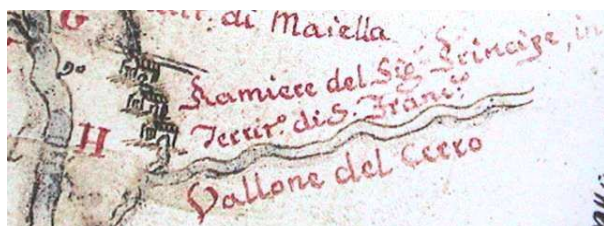 di Maiella
G
90
Ramiere del Sig.r Principe, in
Territ.o di S. Franc.o
H
Vallone del Cerro